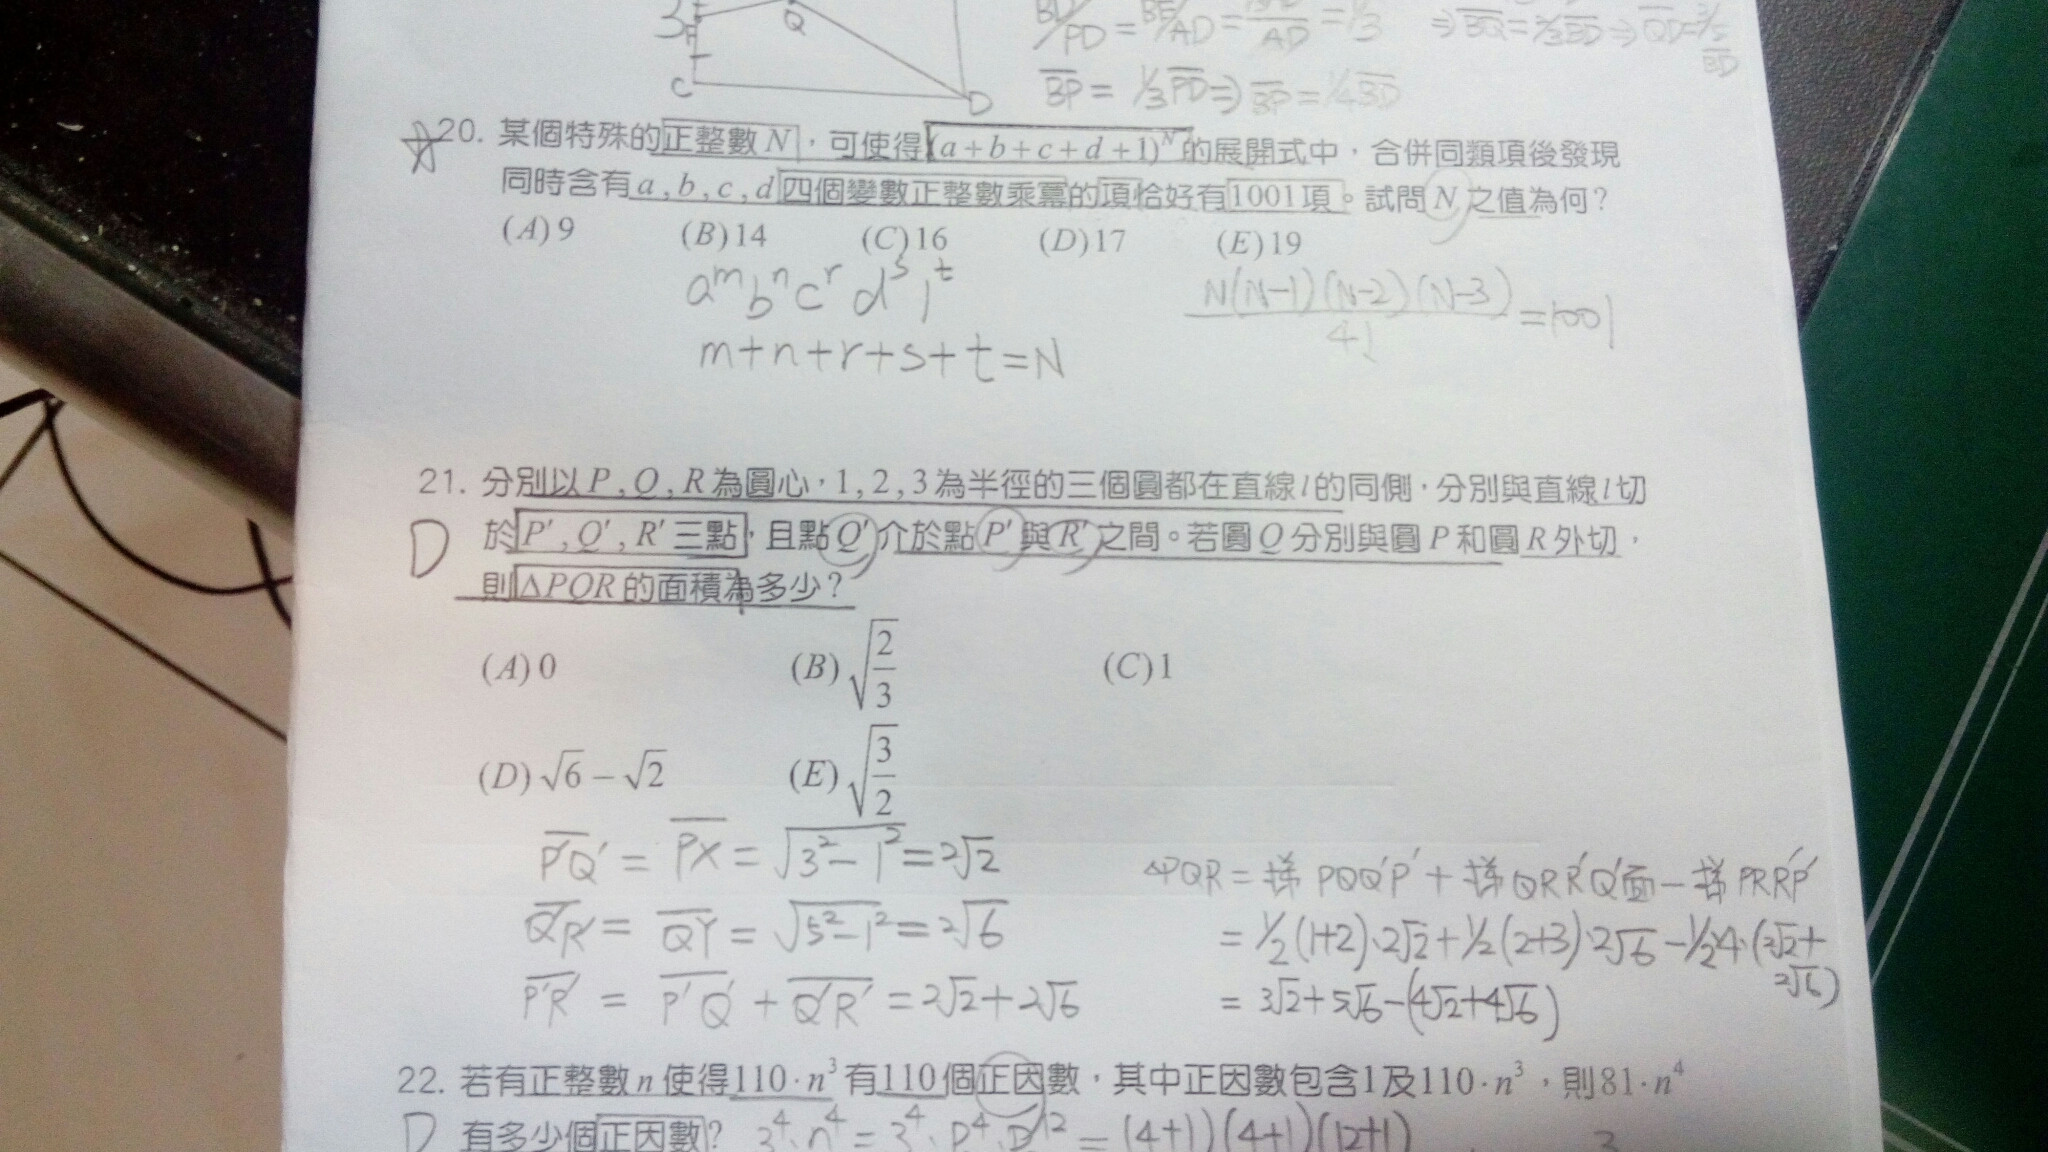 Q
C
D
BP = 1/3PD ⇒ BP = 1/4BD
20. 某個特殊的正整數 N，可使得 (a+b+c+d+1)^N 的展開式中，合併同類項後發現
同時含有 a, b, c, d 四個變數正整數乘冪的項恰好有 1001 項。試問 N 之值為何？
(A) 9 (B) 14 (C) 16 (D) 17 (E) 19
a^m b^n c^r d^s 1^t
m+n+r+s+t=N
N(N-1)(N-2)(N-3)/4! = 1001
21. 分別以 P, Q, R 為圓心，1, 2, 3 為半徑的三個圓都在直線 l 的同側，分別與直線 l 切
D
於 P', Q', R' 三點，且點 Q' 介於點 P' 與 R' 之間。若圓 Q 分別與圓 P 和圓 R 外切，
則 ΔPQR 的面積為多少？
(A) 0 (B) √(2/3) (C) 1
(D) √6 − √2 (E) √(3/2)
P'Q' = PX = √(3²−1²) = 2√2
Q'R' = QY = √(5²−1²) = 2√6
P'R' = P'Q' + Q'R' = 2√2+2√6
△PQR = 梯PQQ'P' + 梯QRR'Q'面 − 梯PRR'P'
= 1/2(1+2)·2√2 + 1/2(2+3)·2√6 − 1/2·4·(2√2+2√6)
= 3√2+5√6−(4√2+4√6)
22. 若有正整數 n 使得 110·n³ 有 110 個正因數，其中正因數包含 1 及 110·n³，則 81·n⁴
D
有多少個正因數？ 3⁴·n⁴ = 3⁴·P⁴·P¹² = (4+1)(4+1)(12+1)